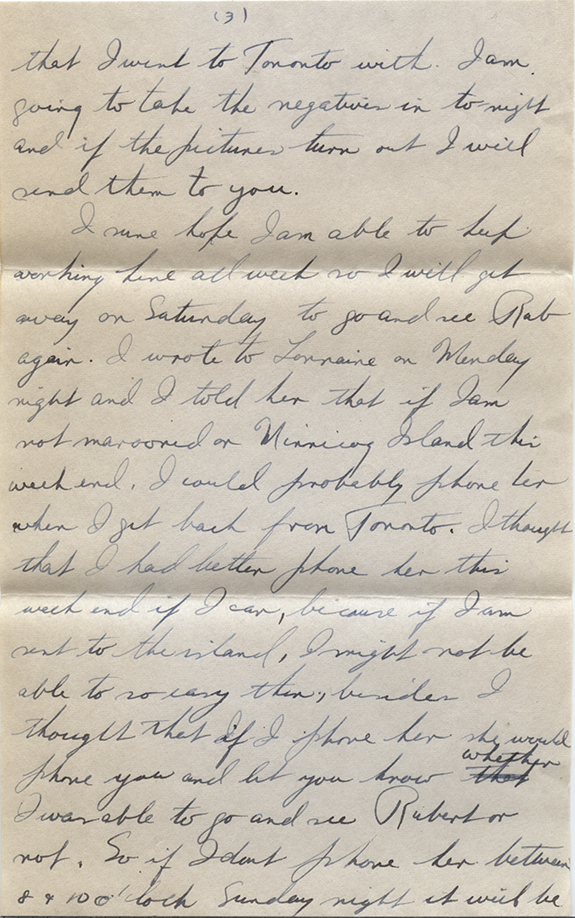 (3)
that I went to Toronto with. I am
going to take the negatives in to-night
and if the pictures turn out I will
send them to you.
I sure hope I am able to keep
working here all week so I will get
away on Saturday to go and see Rub
again. I wrote to Lorraine on Monday
night and I told her that if I am
not marooned on Minnicog Island this
week end, I could probably phone her
when I get back from Toronto. I thought
that I had better phone her this
week end if I can, because if I am
sent to the island, I might not be
able to so easy then, besides I
thought that if I phone her she would
phone you and let you know whether
I was able to go and see Rubert or
not. So if I dont phone her between
8 & 10 O'clock Sunday night it will be